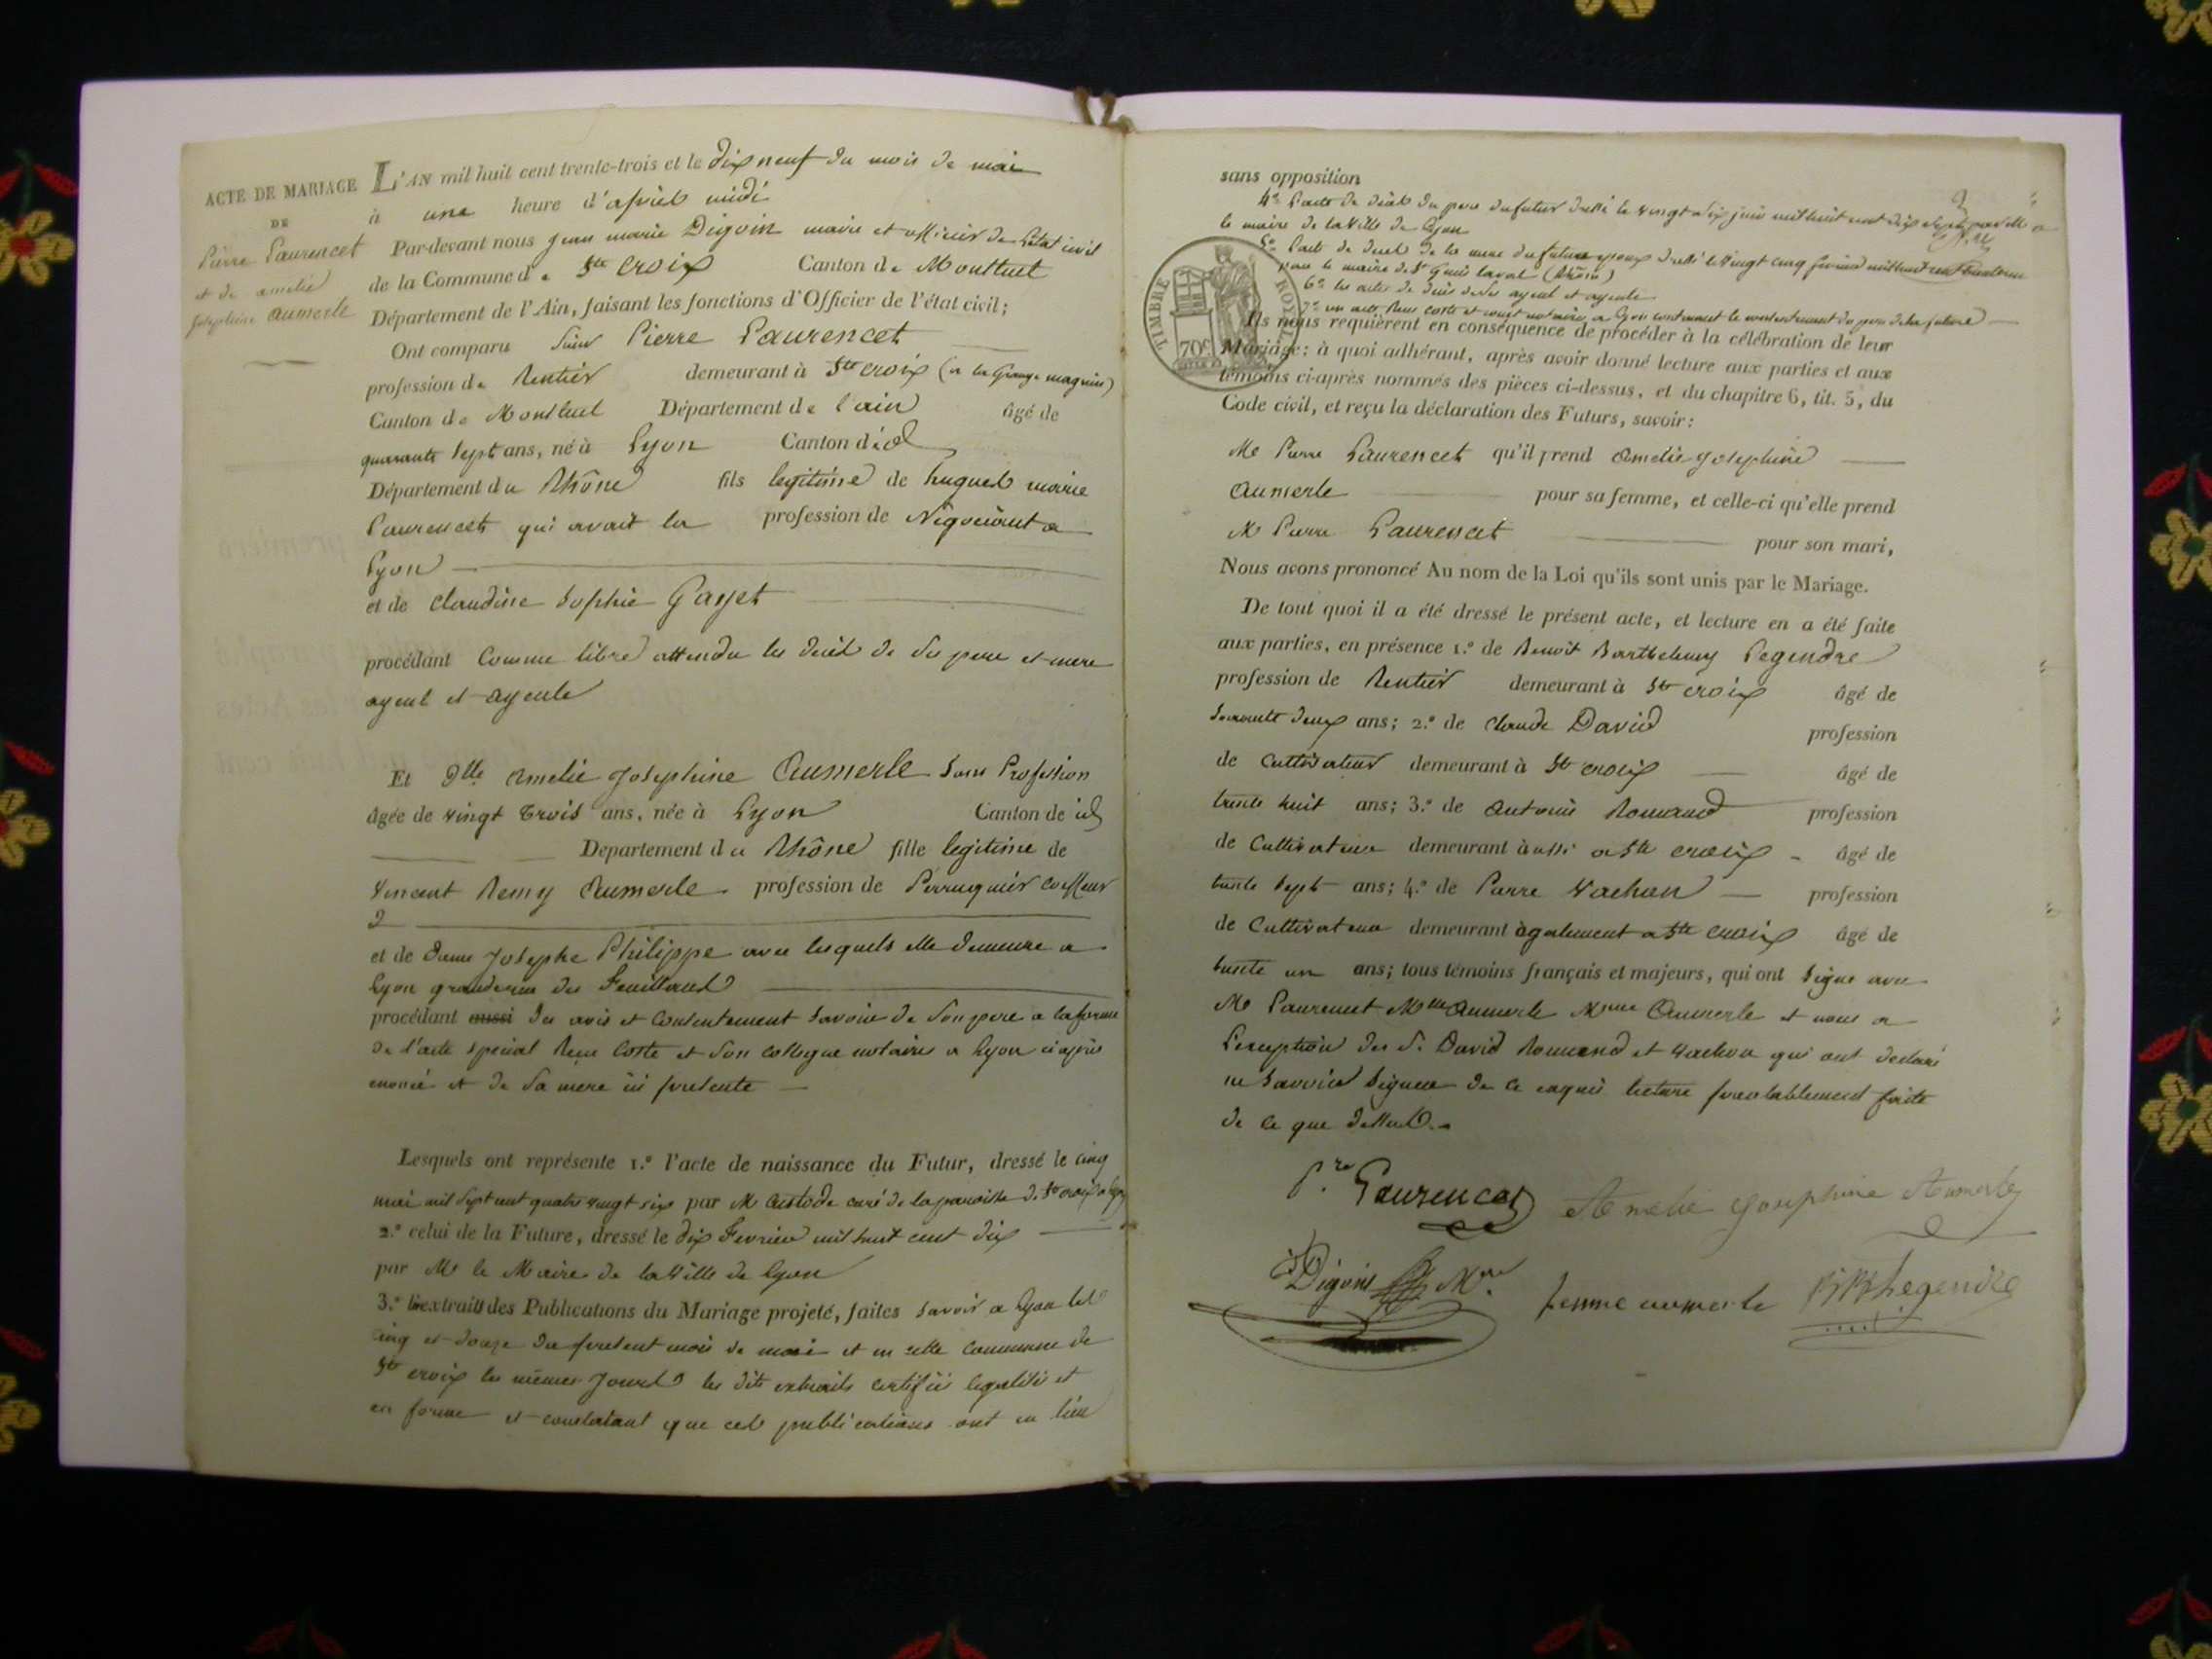 ACTE DE MARIAGE
DE
Pierre Laurencet
et de amelie
Josephine aumerle
L'AN mil huit cent trente-trois et le dix neuf du mois de mai
à une heure d'après midi
Par-devant nous jean marie Digoin maire et officier de l'état civil
de la Commune de Ste Croix Canton de Montluel
Département de l'Ain, faisant les fonctions d'Officier de l'état civil;
Ont comparu Sieur Pierre Laurencet
profession de Rentier demeurant à Ste croix (a la Grange magnien)
Canton de Montluel Département de l'ain âgé de
quarante sept ans, né à Lyon Canton d'id
Département du Rhône fils legitime de hugues marie
Laurencet qui avait la profession de Négociant a
Lyon
et de Claudine Sophie Gayet
procédant Comme libre attendu les décès de ses pere et mere
ayeul et ayeule
Et Dlle Amelie Josephine Aumerle Sans Profession
âgée de vingt trois ans, née à Lyon Canton de id
Département du Rhône fille legitime de
Vincent Remy Aumerle profession de Perruquier coeffeur
et de Dame Josephe Philippe avec lesquels elle demeure a
Lyon grande rue des Feuillants
procédant aussi des avis et Consentement savoir de son pere a la forme
de l'acte spécial Reçu Coste et son collegue notaires a Lyon ci après
enoncé et de sa mere ici presente
Lesquels ont représenté 1.º l'acte de naissance du Futur, dressé le cinq
mai mil sept cent quatre vingt six par Mr Custode curé de la paroisse de Ste croix a Lyon
2.º celui de la Future, dressé le dix Fevrier mil huit cent dix
par Mr le Maire de la Ville de Lyon
3.º les extraits des Publications du Mariage projeté, faites savoir a Lyon les
cinq et douze du present mois de mai et en cette commune de
Ste croix les mêmes jours les dits extraits certifiés legalisés et
en forme et constatant que ces publications ont eu lieu
sans opposition
4º l'acte de décès du pere du futur dressé le vingt six juin mil huit cent dix sept par Mr
le maire de la Ville de Lyon
5º l'acte de décès de la mere du futur epoux dressé le vingt cinq
par le maire de St Genis laval (Rhône)
6º les actes de décès de ses ayeul et ayeule
7º un acte Reçu coste et son notaires a Lyon contenant le consentement du pere de la future
TIMBRE ROYAL
70c
Ils nous requièrent en conséquence de procéder à la célébration de leur
Mariage: à quoi adhérant, après avoir donné lecture aux parties et aux
témoins ci-après nommés des pièces ci-dessus, et du chapitre 6, tit. 5, du
Code civil, et reçu la déclaration des Futurs, savoir:
Mr Pierre Laurencet qu'il prend Amelie Josephine
Aumerle pour sa femme, et celle-ci qu'elle prend
Mr Pierre Laurencet pour son mari,
Nous avons prononcé Au nom de la Loi qu'ils sont unis par le Mariage.
De tout quoi il a été dressé le présent acte, et lecture en a été faite
aux parties, en présence 1.º de Benoit Barthelemy Legendre
profession de Rentier demeurant à Ste croix âgé de
soixante deux ans; 2.º de Claude David profession
de Cultivateur demeurant à Ste croix âgé de
trente huit ans; 3.º de Antoine Romand profession
de Cultivateur demeurant aussi a Ste croix âgé de
trente sept ans; 4.º de Pierre Vachon profession
de Cultivateur demeurant également a Ste croix âgé de
trente un ans; tous témoins français et majeurs, qui ont signé avec
Mr Laurencet Mlle Aumerle Mme Aumerle et nous a
l'exception des S. David Romand et Vachon qui ont declaré
ne savoir signer de ce enquis lecture prealablement faite
de ce que dessus.
Pre Laurencet Amelie Josephine Aumerle
Digoin Mre femme aumerle BB Legendre